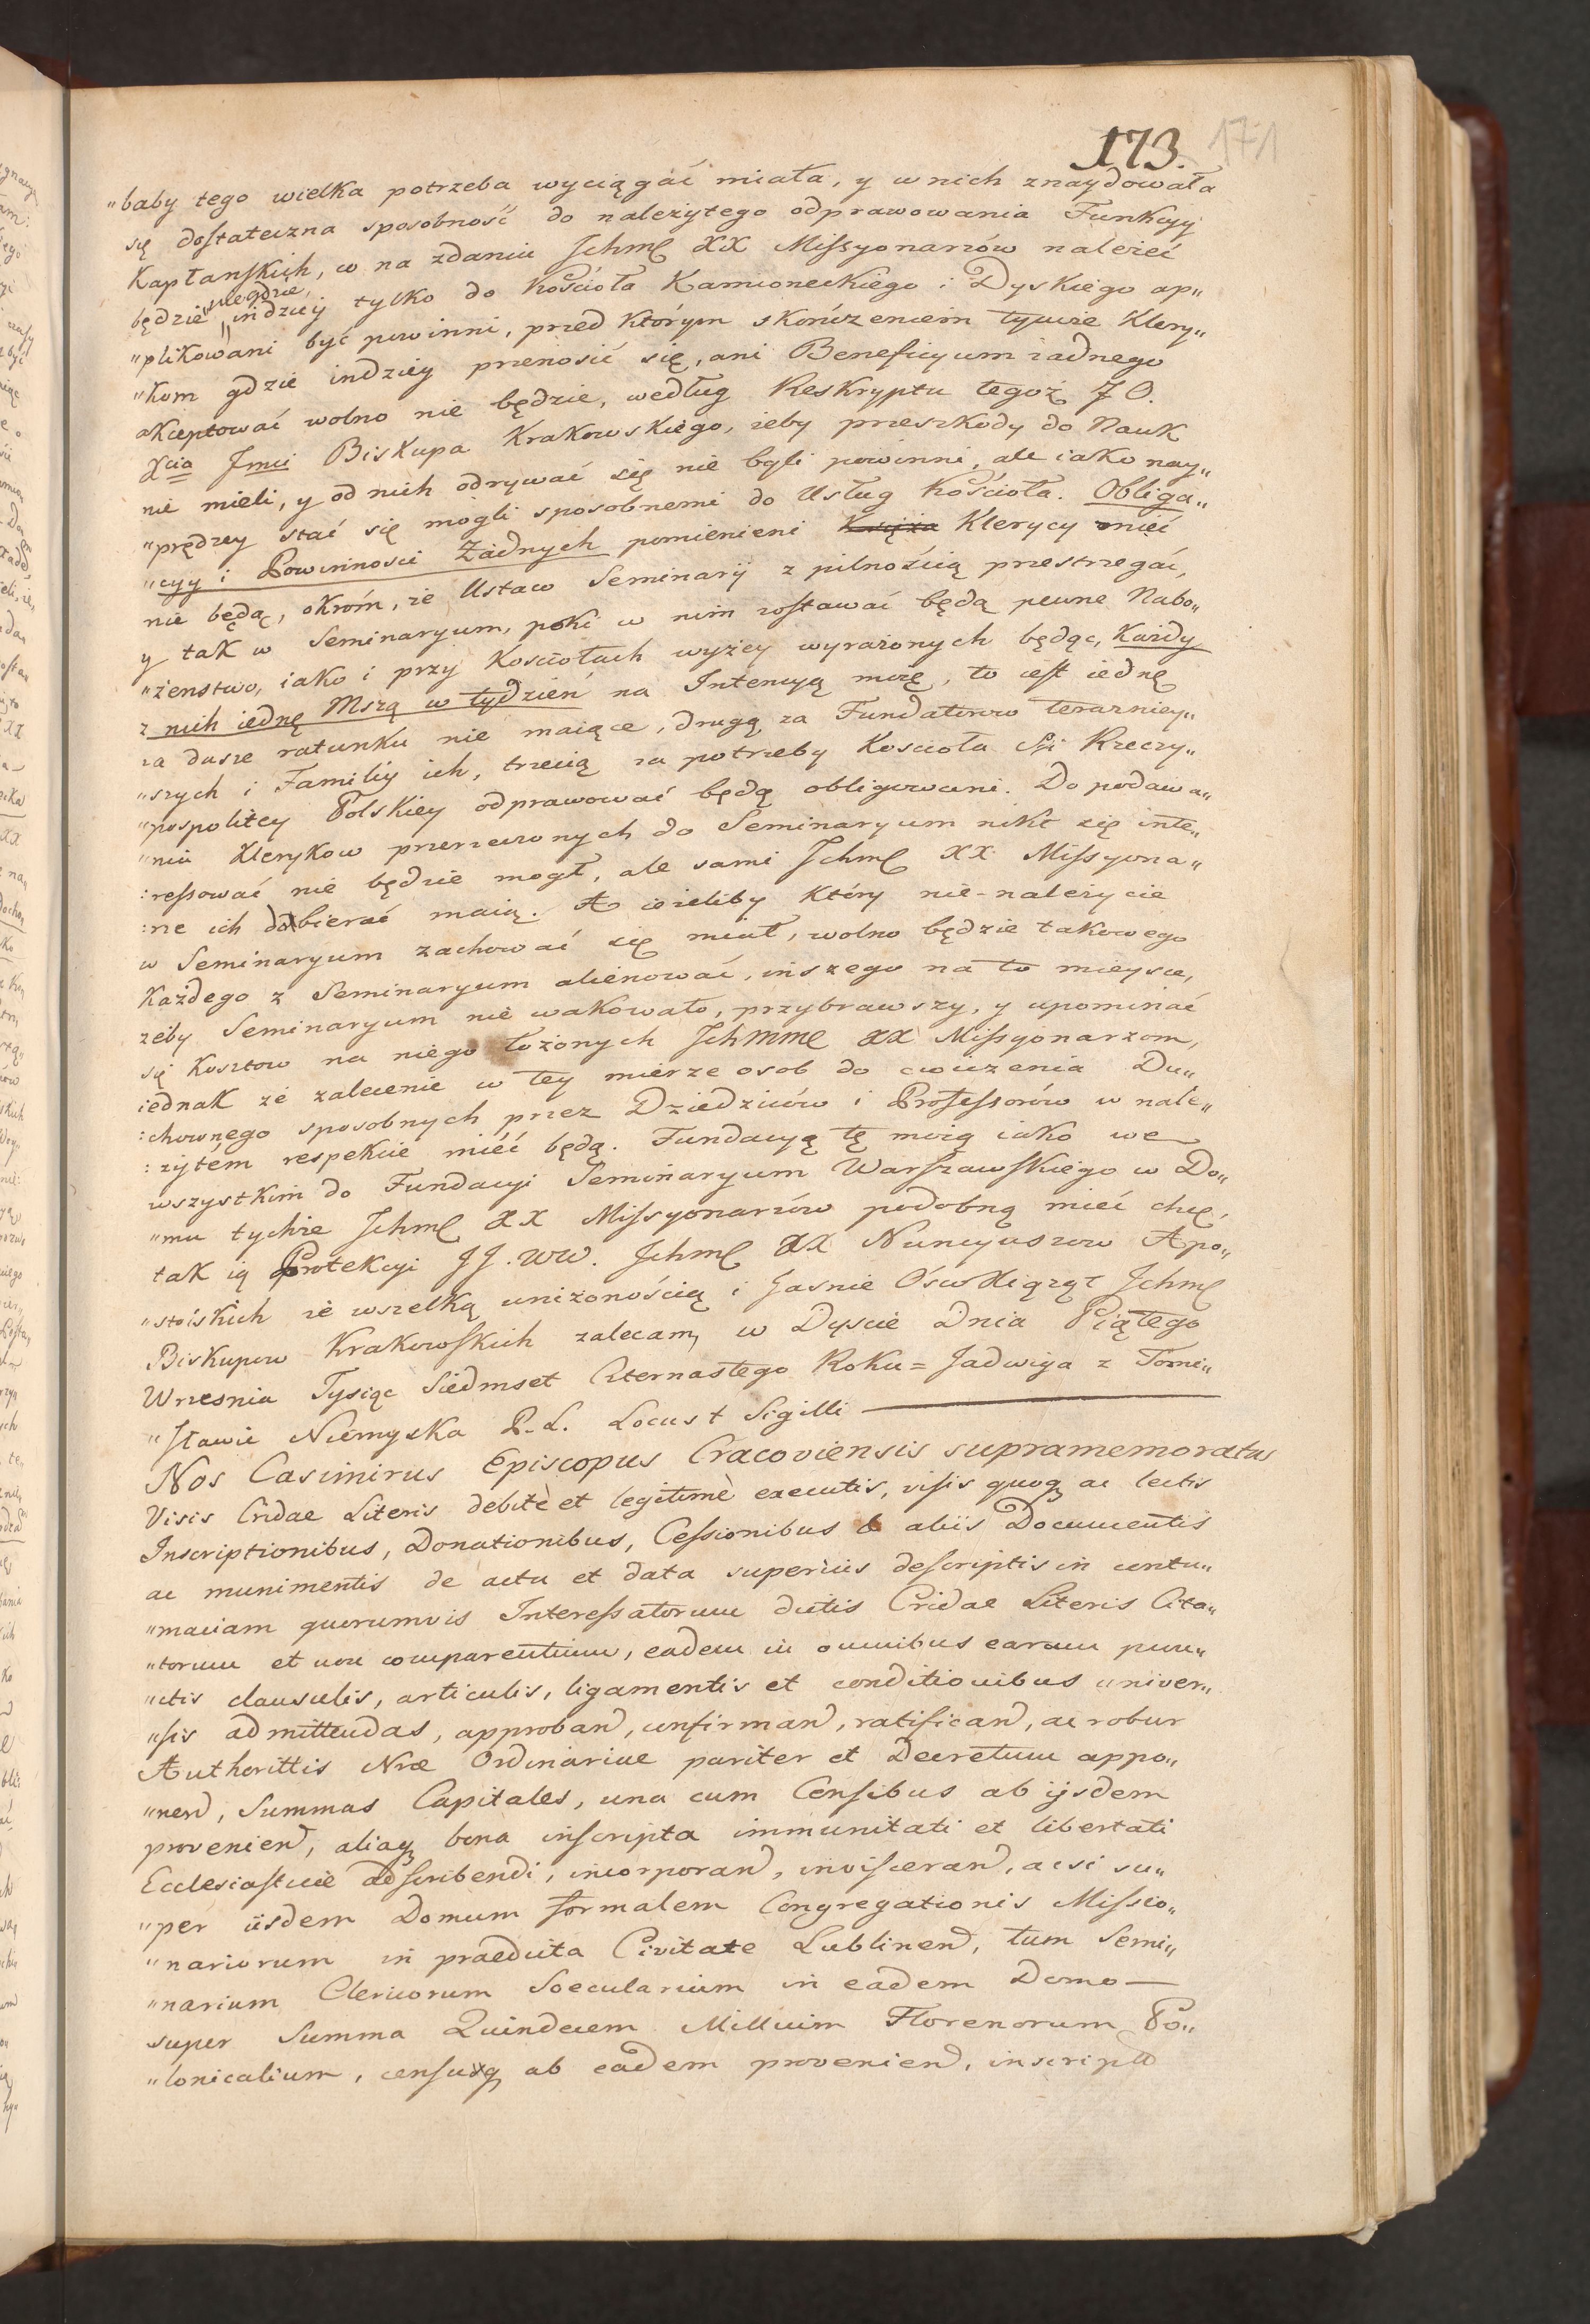 173. 171
„baby tego wielka potrzeba wyciągać miała, y w nich znaydowała
się dostateczna sposobność do należytego odprawowania Funkcyy
Kapłanskich, co na zdaniu Jchmć XX Missyonarzów należeć
będzie niegdzie indziey tylko do Kościoła Kamioneckiego i Dyskiego ap„
„plikowani być powinni, przed którym skończeniem tymże Klery„
„kom gdzie indziey przenosić się, ani Beneficyum żadnego
akceptować wolno nie będzie, według Reskryptu tegoż J O.
Xcia Jmci Biskupa Krakowskiego, żeby przeszkody do Nauk
nie mieli, y od nich odrywać się nie byli powinni, ale iako nay„
„prędzey stać się mogli sposobnemi do Usług Kościoła. Obliga„
„cyy i Powinnosci Żadnych pomienieni Księża Klerycy mieć
nie będą, okróm, że Ustaw Seminarij z pilnością przestrzegać,
y tak w Seminaryum, poki w nim zostawać będą pewne Nabo„
„żenstwo, iako i przy Kosciołach wyżey wyrażonych będąc, Każdy
z nich iednę Mszą w tydzień na Intencyą moię, to iest iednę
za dusze ratunku nie maiące, drugą za Fundatorow terazniey„
„szych i Familiy ich, trzecią za potrzeby Koscioła S. i Rzeczy„
„pospolitey Polskiey odprawować będą obligowani. Do podawa„
„nia Klerykow przerzeczonych do Seminaryum nikt się inte„
:ressować nie będzie mogł, ale sami Jchmć XX Missyona„
:rze ich dobierać maią. A ieżeliby który nie-należycie
w Seminaryum zachować się miał, wolno będzie takowego
Każdego z Seminaryum alienować, inszego na to mieysce,
zeby Seminaryum nie wakowało, przybrawszy, y upominać
się kosztow na niego łożonych Jchmmć XX Missyonarzom,
iednak że zalecenie w tey mierze osob do cwiczenia Du„
:chownego sposobnych przez Dziedziców i Professorów w nale„
:żytém respekcie mieć będą. Fundacyą tę moię iako we
wszystkim do Fundacyi Seminaryum Warszawskiego w Do„
„mu tychże Jchmć XX Missyonarzów podobną mieć chcę,
tak ią Protekcyi JJ. WW. Jchmć XX Nuncyuszow Apo„
„stolskich ze wszelką uniżonością i Jasnie Ośw Xiążąt Jchmć
Biskupow Krakowskich zalecam, w Dyscie Dnia Piątego
Wrzesnia Tysiąc Siedmset Czternastego Roku = Jadwiga z Tomi„
„sławic Niemyska P. L. Locus † Sigilli
Nos Casimirus Episcopus Cracoviensis supramemoratus
Visis Cridae Literis debitè et legitimè executis, visis quoq3 ac lectis
Inscriptionibus, Donationibus, Cessionibus & aliis Documentis
ac munimentis de actu et data superius descriptis in contu„
„maciam quorumvis Interessatorum dictis Cridae Literis Cita„
„torum et non comparentium, eadem in omnibus earum pun„
„ctis clausulis, articulis, ligamentis et conditionibus univer„
„sis admittendas, approband, confirmand, ratificand, ac robur
Authorittis Nrae Ordinariae pariter et Decretum appo„
„nend, Summas Capitales, una cum Censibus ab ijsdem
provenien̄d, aliaq3 bona inscripta immunitati et libertati
Ecclesiasticae adscribendi, incorporand, inviscerand, acsi su„
„per iisdem Domum formalem Congregationis Missio„
„nariorum in praedicta Civitate Lublinen̄d, tum Semi„
„narium Clericorum Soecularium in eadem Domo
super Summa Quindecem Millium Florenorum Po„
„lonicalium, censuq3 ab eadem provenien̄d, inscripta